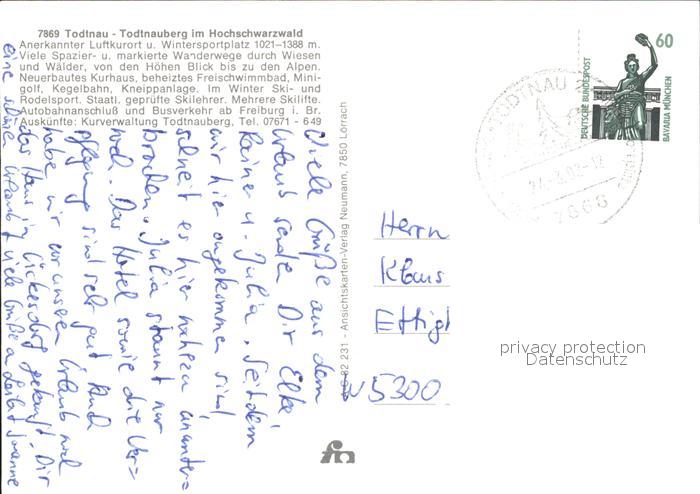 7869 Todtnau - Todtnauberg im Hochschwarzwald
Anerkannter Luftkurort u. Wintersportplatz 1021–1388 m.
Viele Spazier- u. markierte Wanderwege durch Wiesen
und Wälder, von den Höhen Blick bis zu den Alpen.
Neuerbautes Kurhaus, beheiztes Freischwimmbad, Mini-
golf, Kegelbahn, Kneippanlage. Im Winter Ski- und
Rodelsport. Staatl. geprüfte Skilehrer. Mehrere Skilifte.
Autobahnanschluß und Busverkehr ab Freiburg i. Br.
Auskünfte: Kurverwaltung Todtnauberg, Tel. 07671 - 649
Viele Grüße aus dem
Urlaub senden Dir Elke,
Rainer u. Julia. Seitdem
wir hier angekommen sind
schneit es hier nahezu ununter=
brochen. Julia staunt nur
noch. Das Hotel sowie die Ver=
pflegung sind sehr gut. Auch
haben wir vor unserem Urlaub noch
das Haus in gekauft. Dir
eine schönen Urlaub viele Grüße
82 231 - Ansichtskarten-Verlag Neumann, 7850 Lörrach
60
DEUTSCHE BUNDESPOST
BAVARIA MÜNCHEN
TODTNAU
7868
Herrn
Klaus
Ettigl
W 5300
privacy protection
Datenschutz